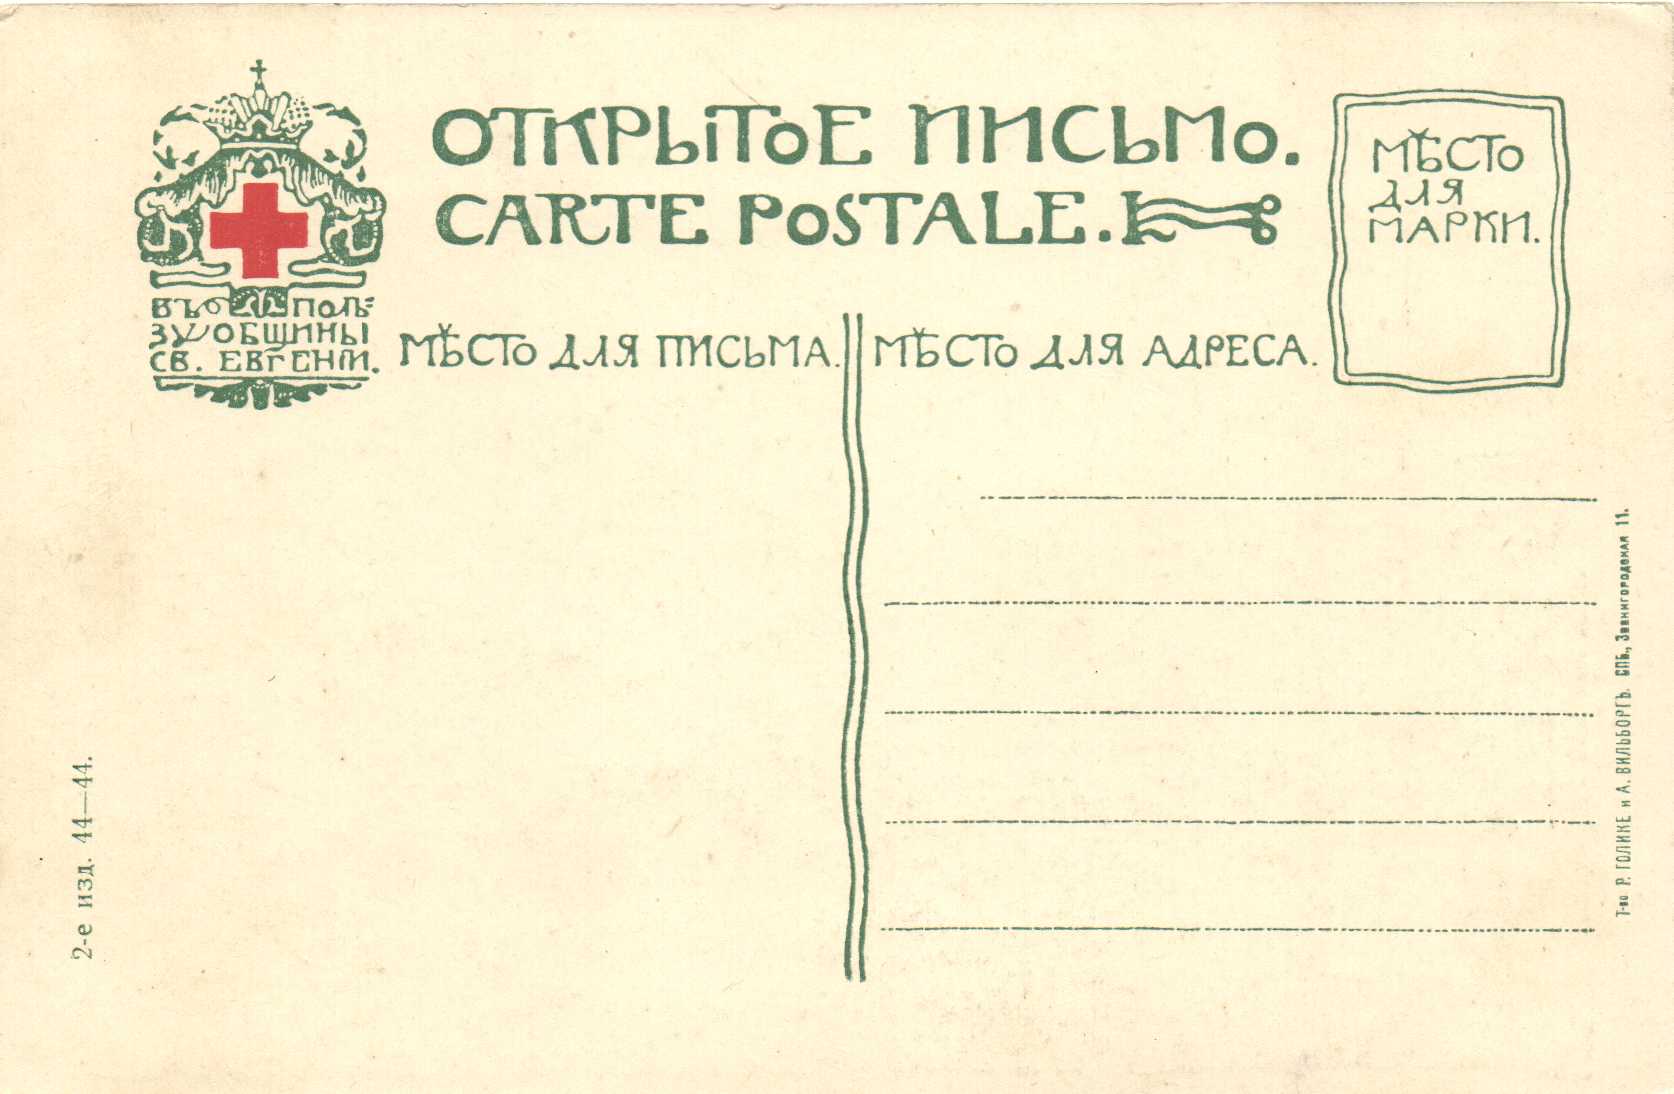 ОТКРЫТОЕ ПИСЬМО.
CARTE POSTALE.
МѢСТО
ДЛЯ
МАРКИ.
ВЪ ПОЛЬ=
ЗУ ОБЩИНЫ
СВ. ЕВГЕНІИ.
МѢСТО ДЛЯ ПИСЬМА.
МѢСТО ДЛЯ АДРЕСА.
2-е изд. 44—44.
Т-во Р. ГОЛИКЕ и А. ВИЛЬБОРГЪ. СПБ., Звенигородская 11.